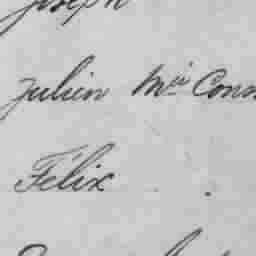 Joseph
Julien Mc Conn
Félix